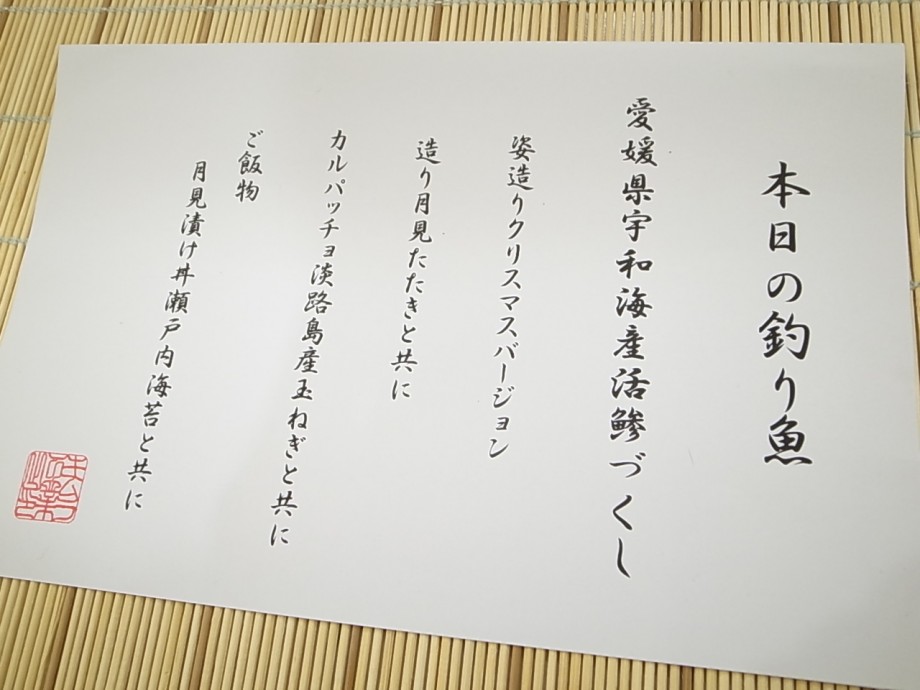 本日の釣り魚
愛媛県宇和海産活鯵づくし
姿造りクリスマスバージョン
造り月見たたきと共に
カルパッチョ淡路島産玉ねぎと共に
ご飯物
月見漬け丼瀬戸内海苔と共に